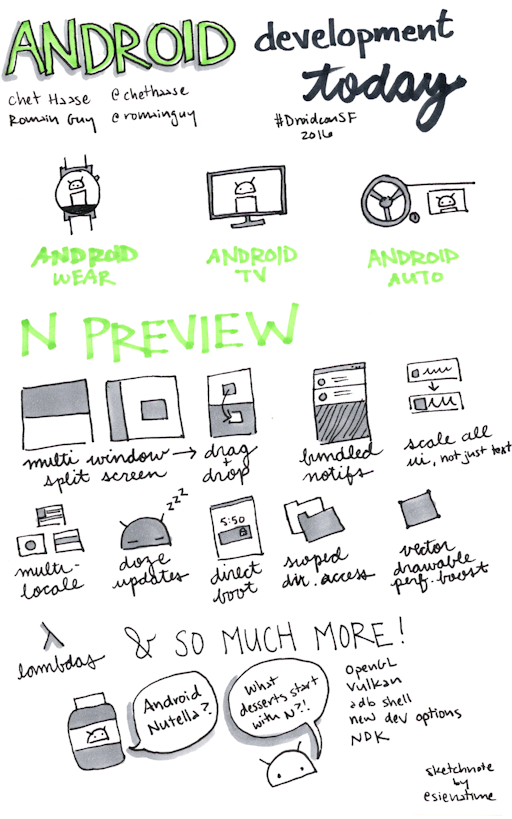 ANDROID development
today
Chet Haase @chethaase
Romain Guy @romainguy
#DroidconSF
2016
ANDROID
WEAR
ANDROID
TV
ANDROID
AUTO
N PREVIEW
multi window
split screen
drag
+
drop
bundled
notifs
scale all
ui, not just text
multi-
locale
zzz
doze
updates
5:50
direct
boot
scoped
dir. access
vector
drawable
perf. boost
λ
lambdas
& SO MUCH MORE!
Android
Nutella?
What
desserts start
with N?!
OpenGL
Vulkan
adb shell
new dev options
NDK
sketchnote
by
@sienatime